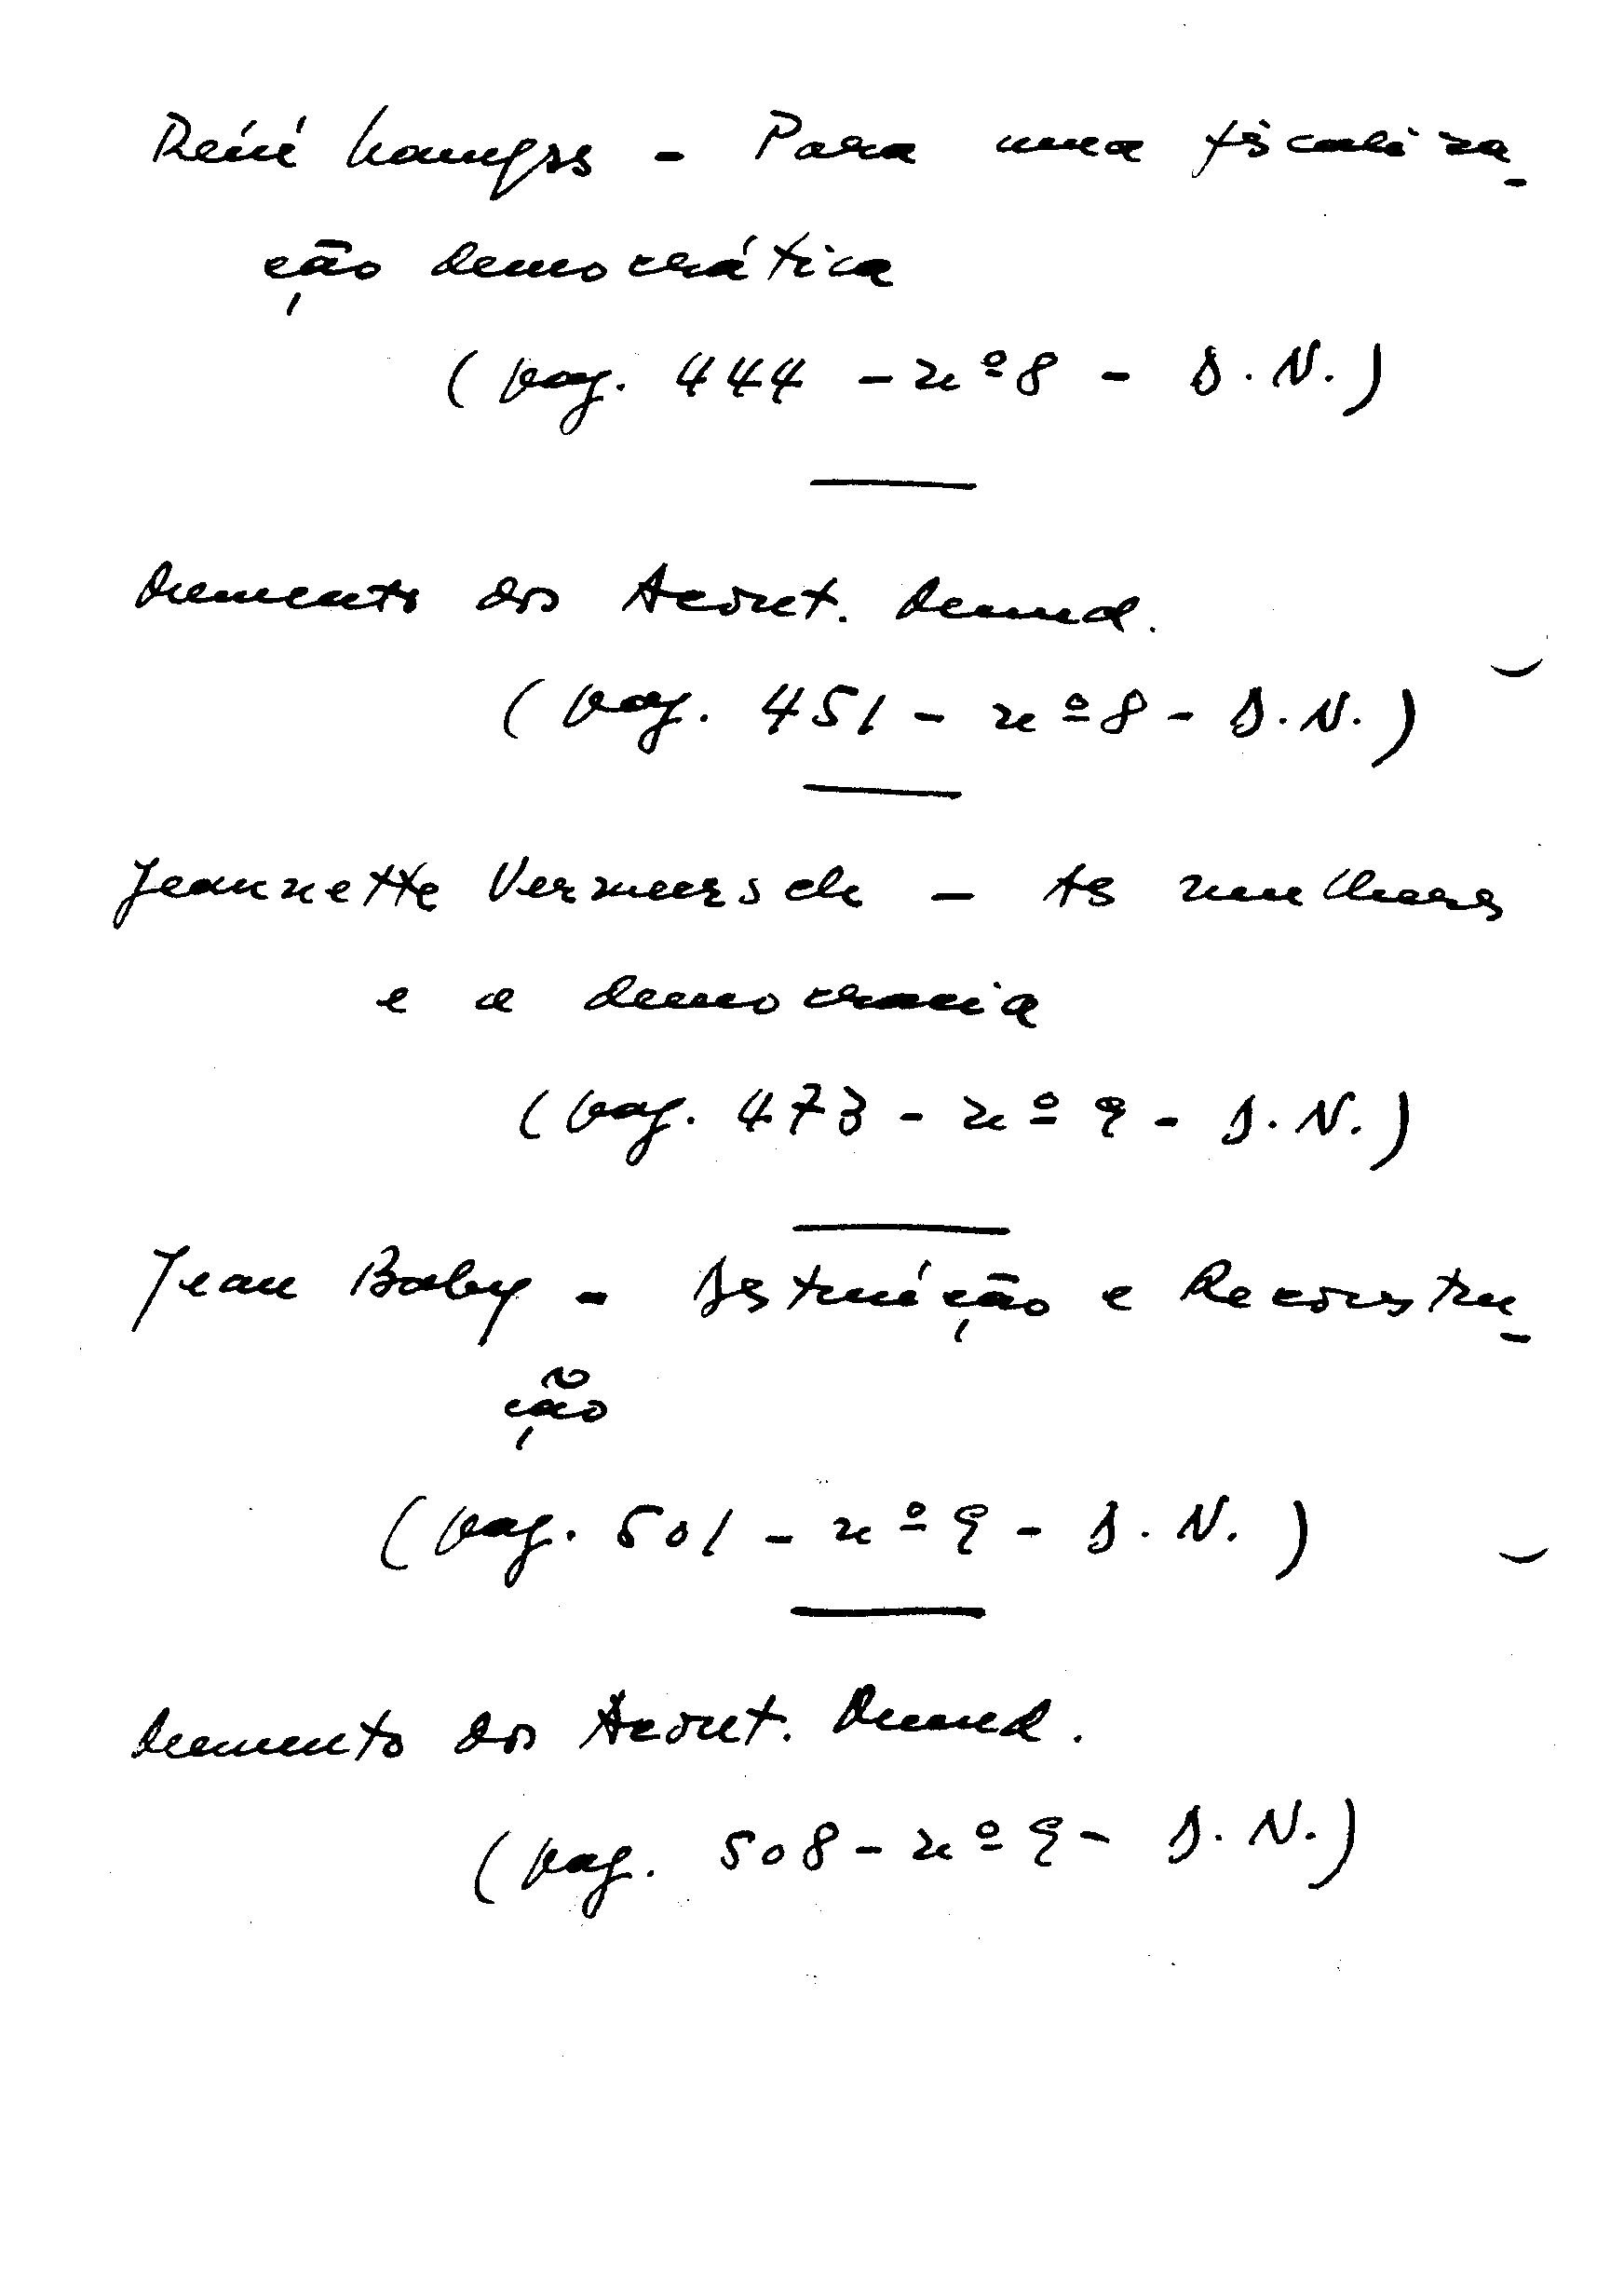 René Lamps - Para uma fiscaliza-
ção democrática
(pag. 444 - nº 8 - S. N.)
Memento dos Acont. Mund.
(pag. 451 - nº 8 - S. N.)
Jeannette Vermeersch - As mulheres
e a democracia
(pag. 473 - nº 9 - S. N.)
Jean Baby - Destruição e Reconstru-
ção
(pag. 501 - nº 9 - S. N.)
Memento dos Acont. Mund.
(pag. 508 - nº 9 - S. N.)